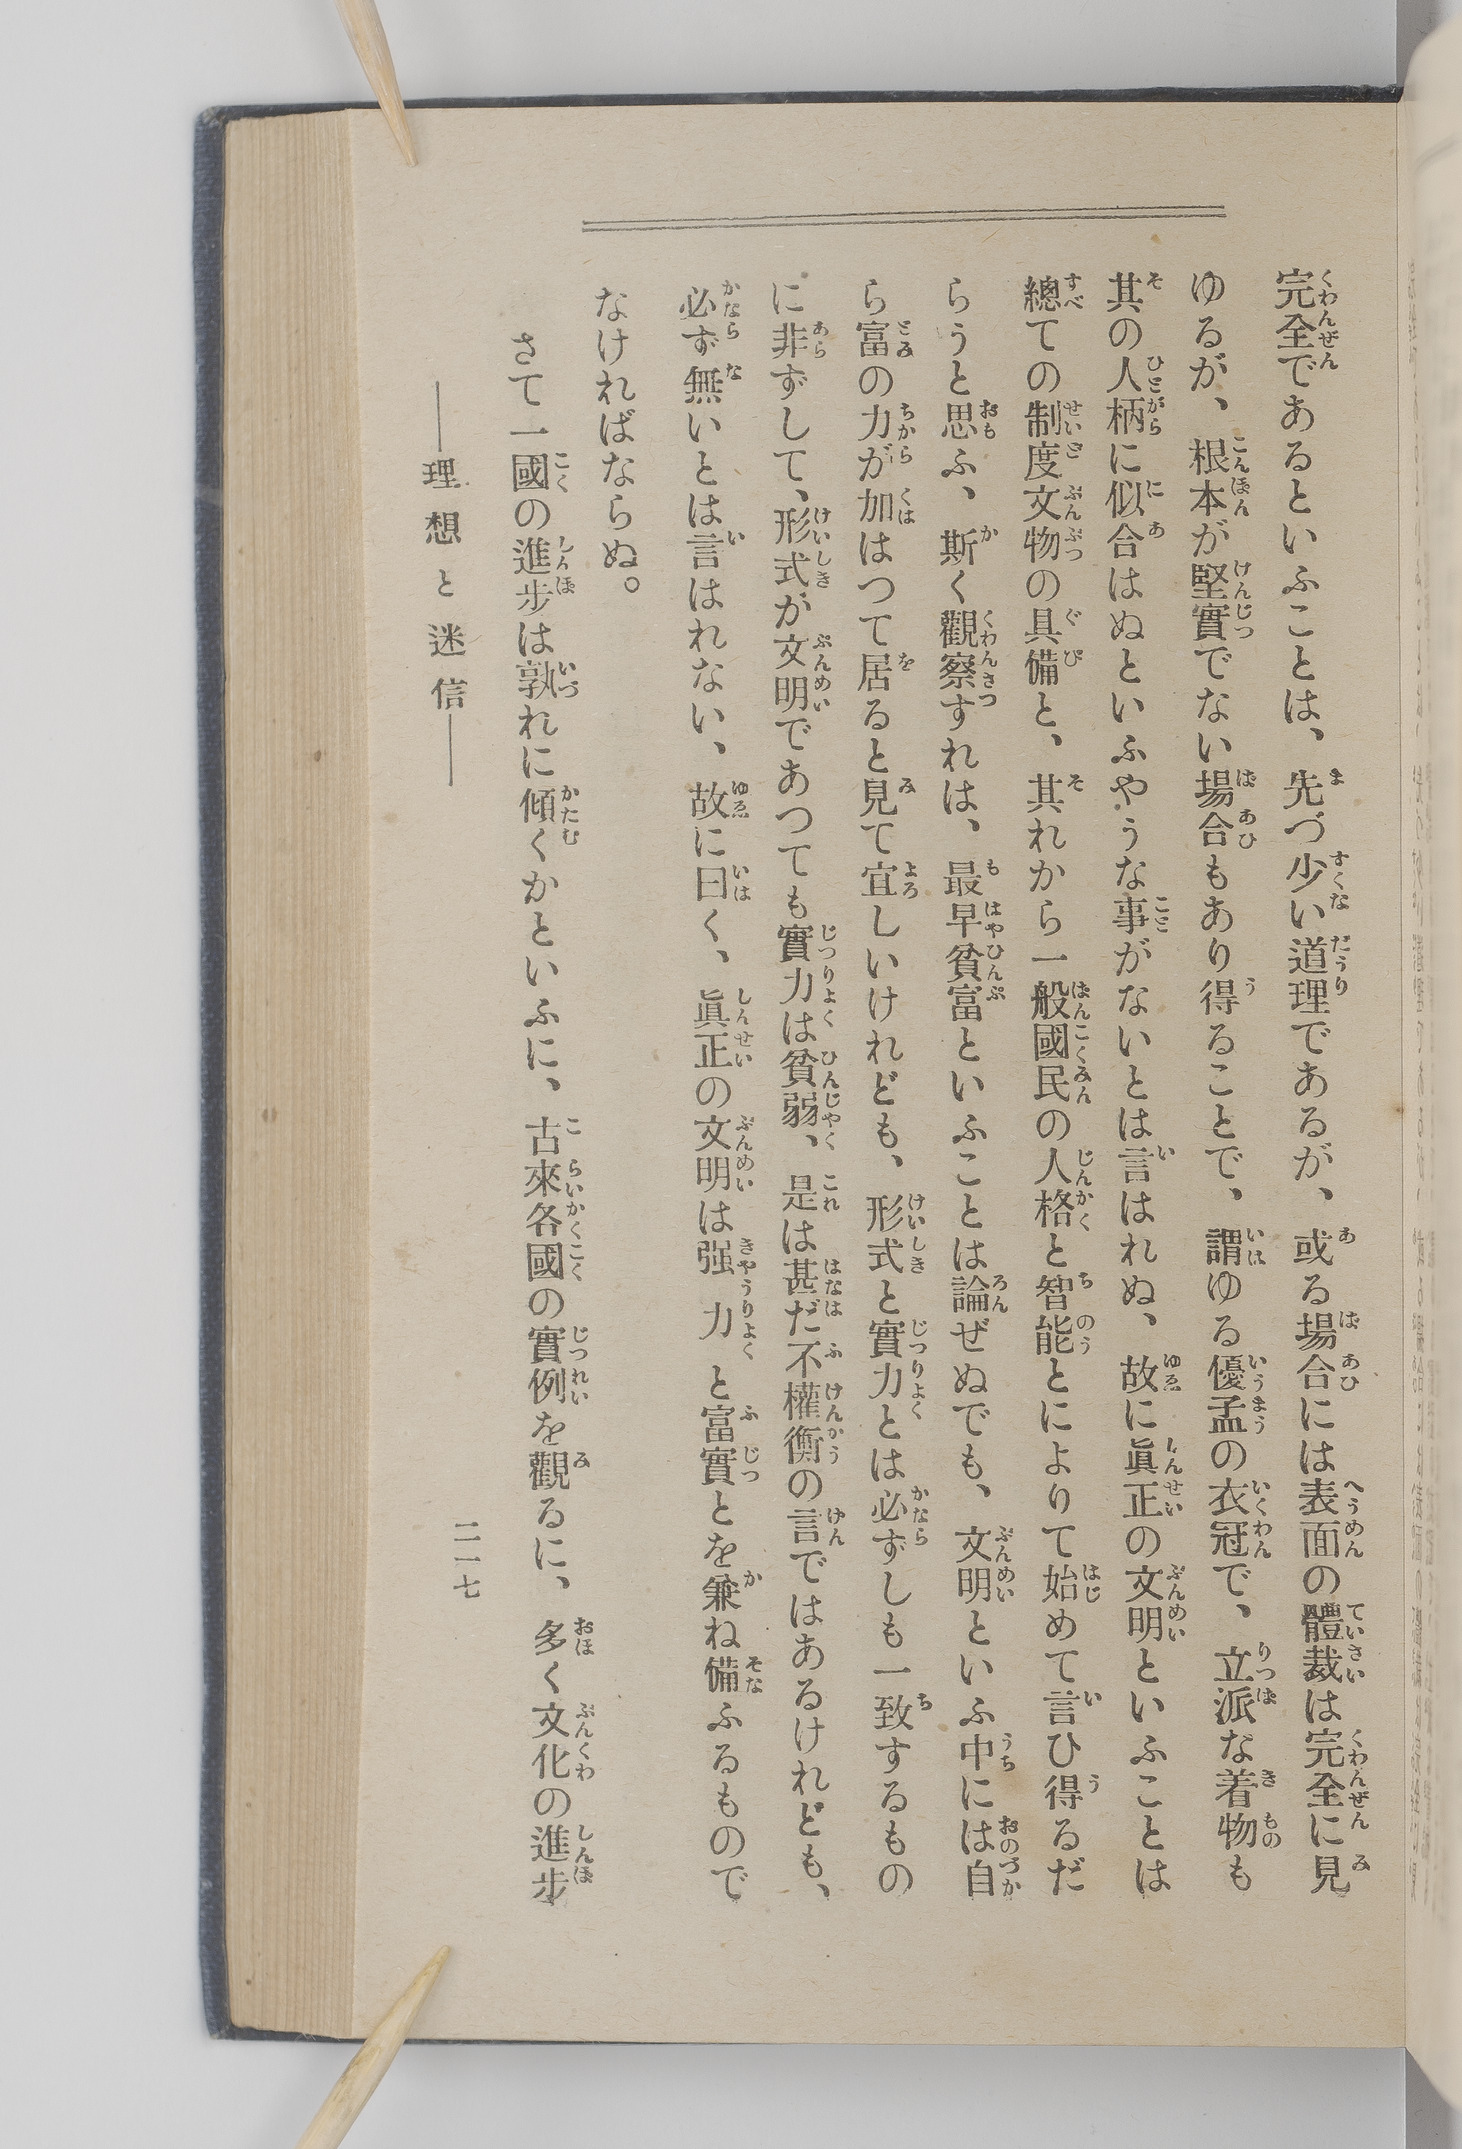 完全であるといふことは、先づ少い道理であるが、或る場合には表面の體裁は完全に見
ゆるが、根本が堅實でない場合もあり得ることで、謂ゆる優孟の衣冠で、立派な着物も
其の人柄に似合はぬといふやうな事がないとは言はれぬ、故に眞正の文明といふことは
總ての制度文物の具備と、其れから一般國民の人格と智能とによりて始めて言ひ得るだ
らうと思ふ、斯く觀察すれは、最早貧富といふことは論ぜぬでも、文明といふ中には自
ら富の力が加はつて居ると見て宜しいけれども、形式と實力とは必ずしも一致するもの
に非ずして、形式が文明であつても實力は貧弱、是は甚だ不權衡の言ではあるけれども、
必ず無いとは言はれない、故に曰く、眞正の文明は强力と富實とを兼ね備ふるもので
なければならぬ。
さて一國の進步は孰れに傾くかといふに、古來各國の實例を觀るに、多く文化の進步
―理想と迷信―
二一七